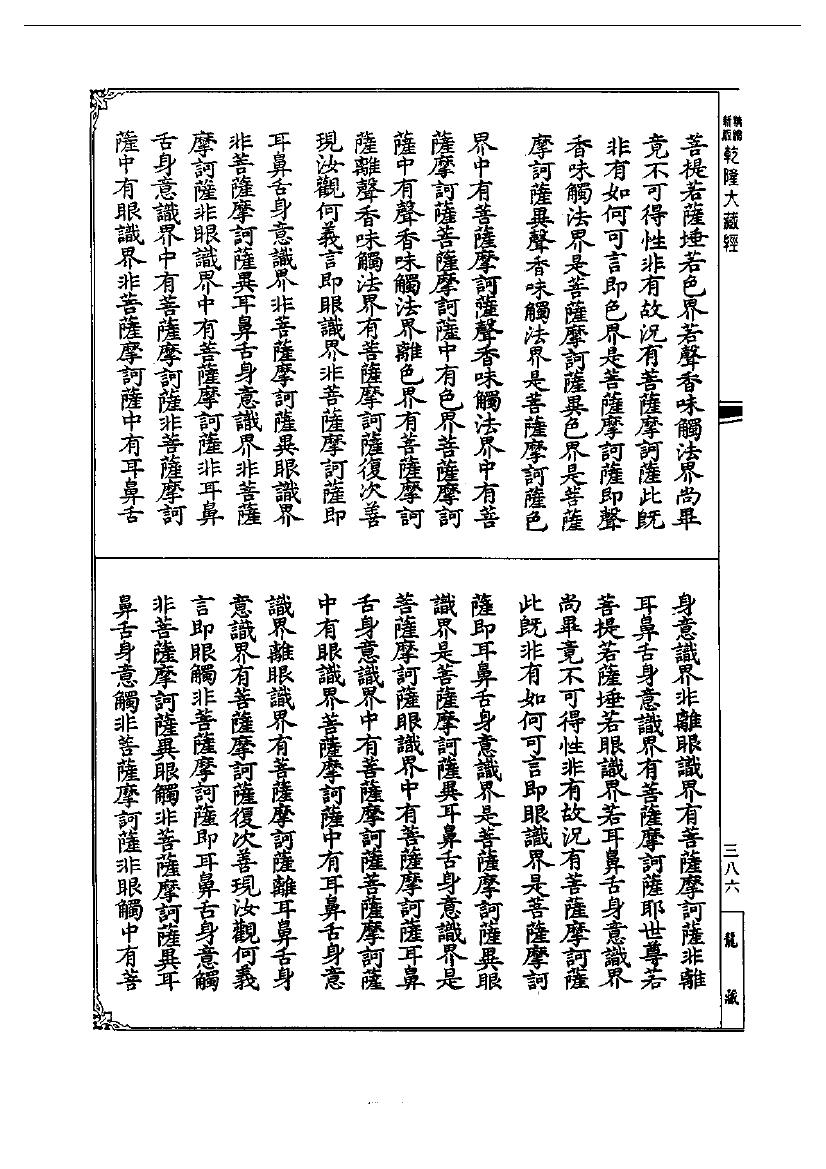 新版
乾隆大藏經
菩提若薩埵若色界若聲香味觸法界尚畢
竟不可得性非有故況有菩薩摩訶薩此旣
非有如何可言即色界是菩薩摩訶薩即聲
香味觸法界是菩薩摩訶薩異色界是菩薩
摩訶薩異聲香味觸法界是菩薩摩訶薩色
界中有菩薩摩訶薩聲香味觸法界中有菩
薩摩訶薩菩薩摩訶薩中有色界菩薩摩訶
薩中有聲香味觸法界離色界有菩薩摩訶
薩離聲香味觸法界有菩薩摩訶薩復次善
現汝觀何義言即眼識界非菩薩摩訶薩即
耳鼻舌身意識界非菩薩摩訶薩異眼識界
非菩薩摩訶薩異耳鼻舌身意識界非菩薩
摩訶薩非眼識界中有菩薩摩訶薩非耳鼻
舌身意識界中有菩薩摩訶薩非菩薩摩訶
薩中有眼識界非菩薩摩訶薩中有耳鼻舌
身意識界非離眼識界有菩薩摩訶薩非離
耳鼻舌身意識界有菩薩摩訶薩耶世尊若
菩提若薩埵若眼識界若耳鼻舌身意識界
尚畢竟不可得性非有故況有菩薩摩訶薩
此旣非有如何可言即眼識界是菩薩摩訶
薩即耳鼻舌身意識界是菩薩摩訶薩異眼
識界是菩薩摩訶薩異耳鼻舌身意識界是
菩薩摩訶薩眼識界中有菩薩摩訶薩耳鼻
舌身意識界中有菩薩摩訶薩菩薩摩訶薩
中有眼識界菩薩摩訶薩中有耳鼻舌身意
識界離眼識界有菩薩摩訶薩離耳鼻舌身
意識界有菩薩摩訶薩復次善現汝觀何義
言即眼觸非菩薩摩訶薩即耳鼻舌身意觸
非菩薩摩訶薩異眼觸非菩薩摩訶薩異耳
鼻舌身意觸非菩薩摩訶薩非眼觸中有菩
三八六
龍藏